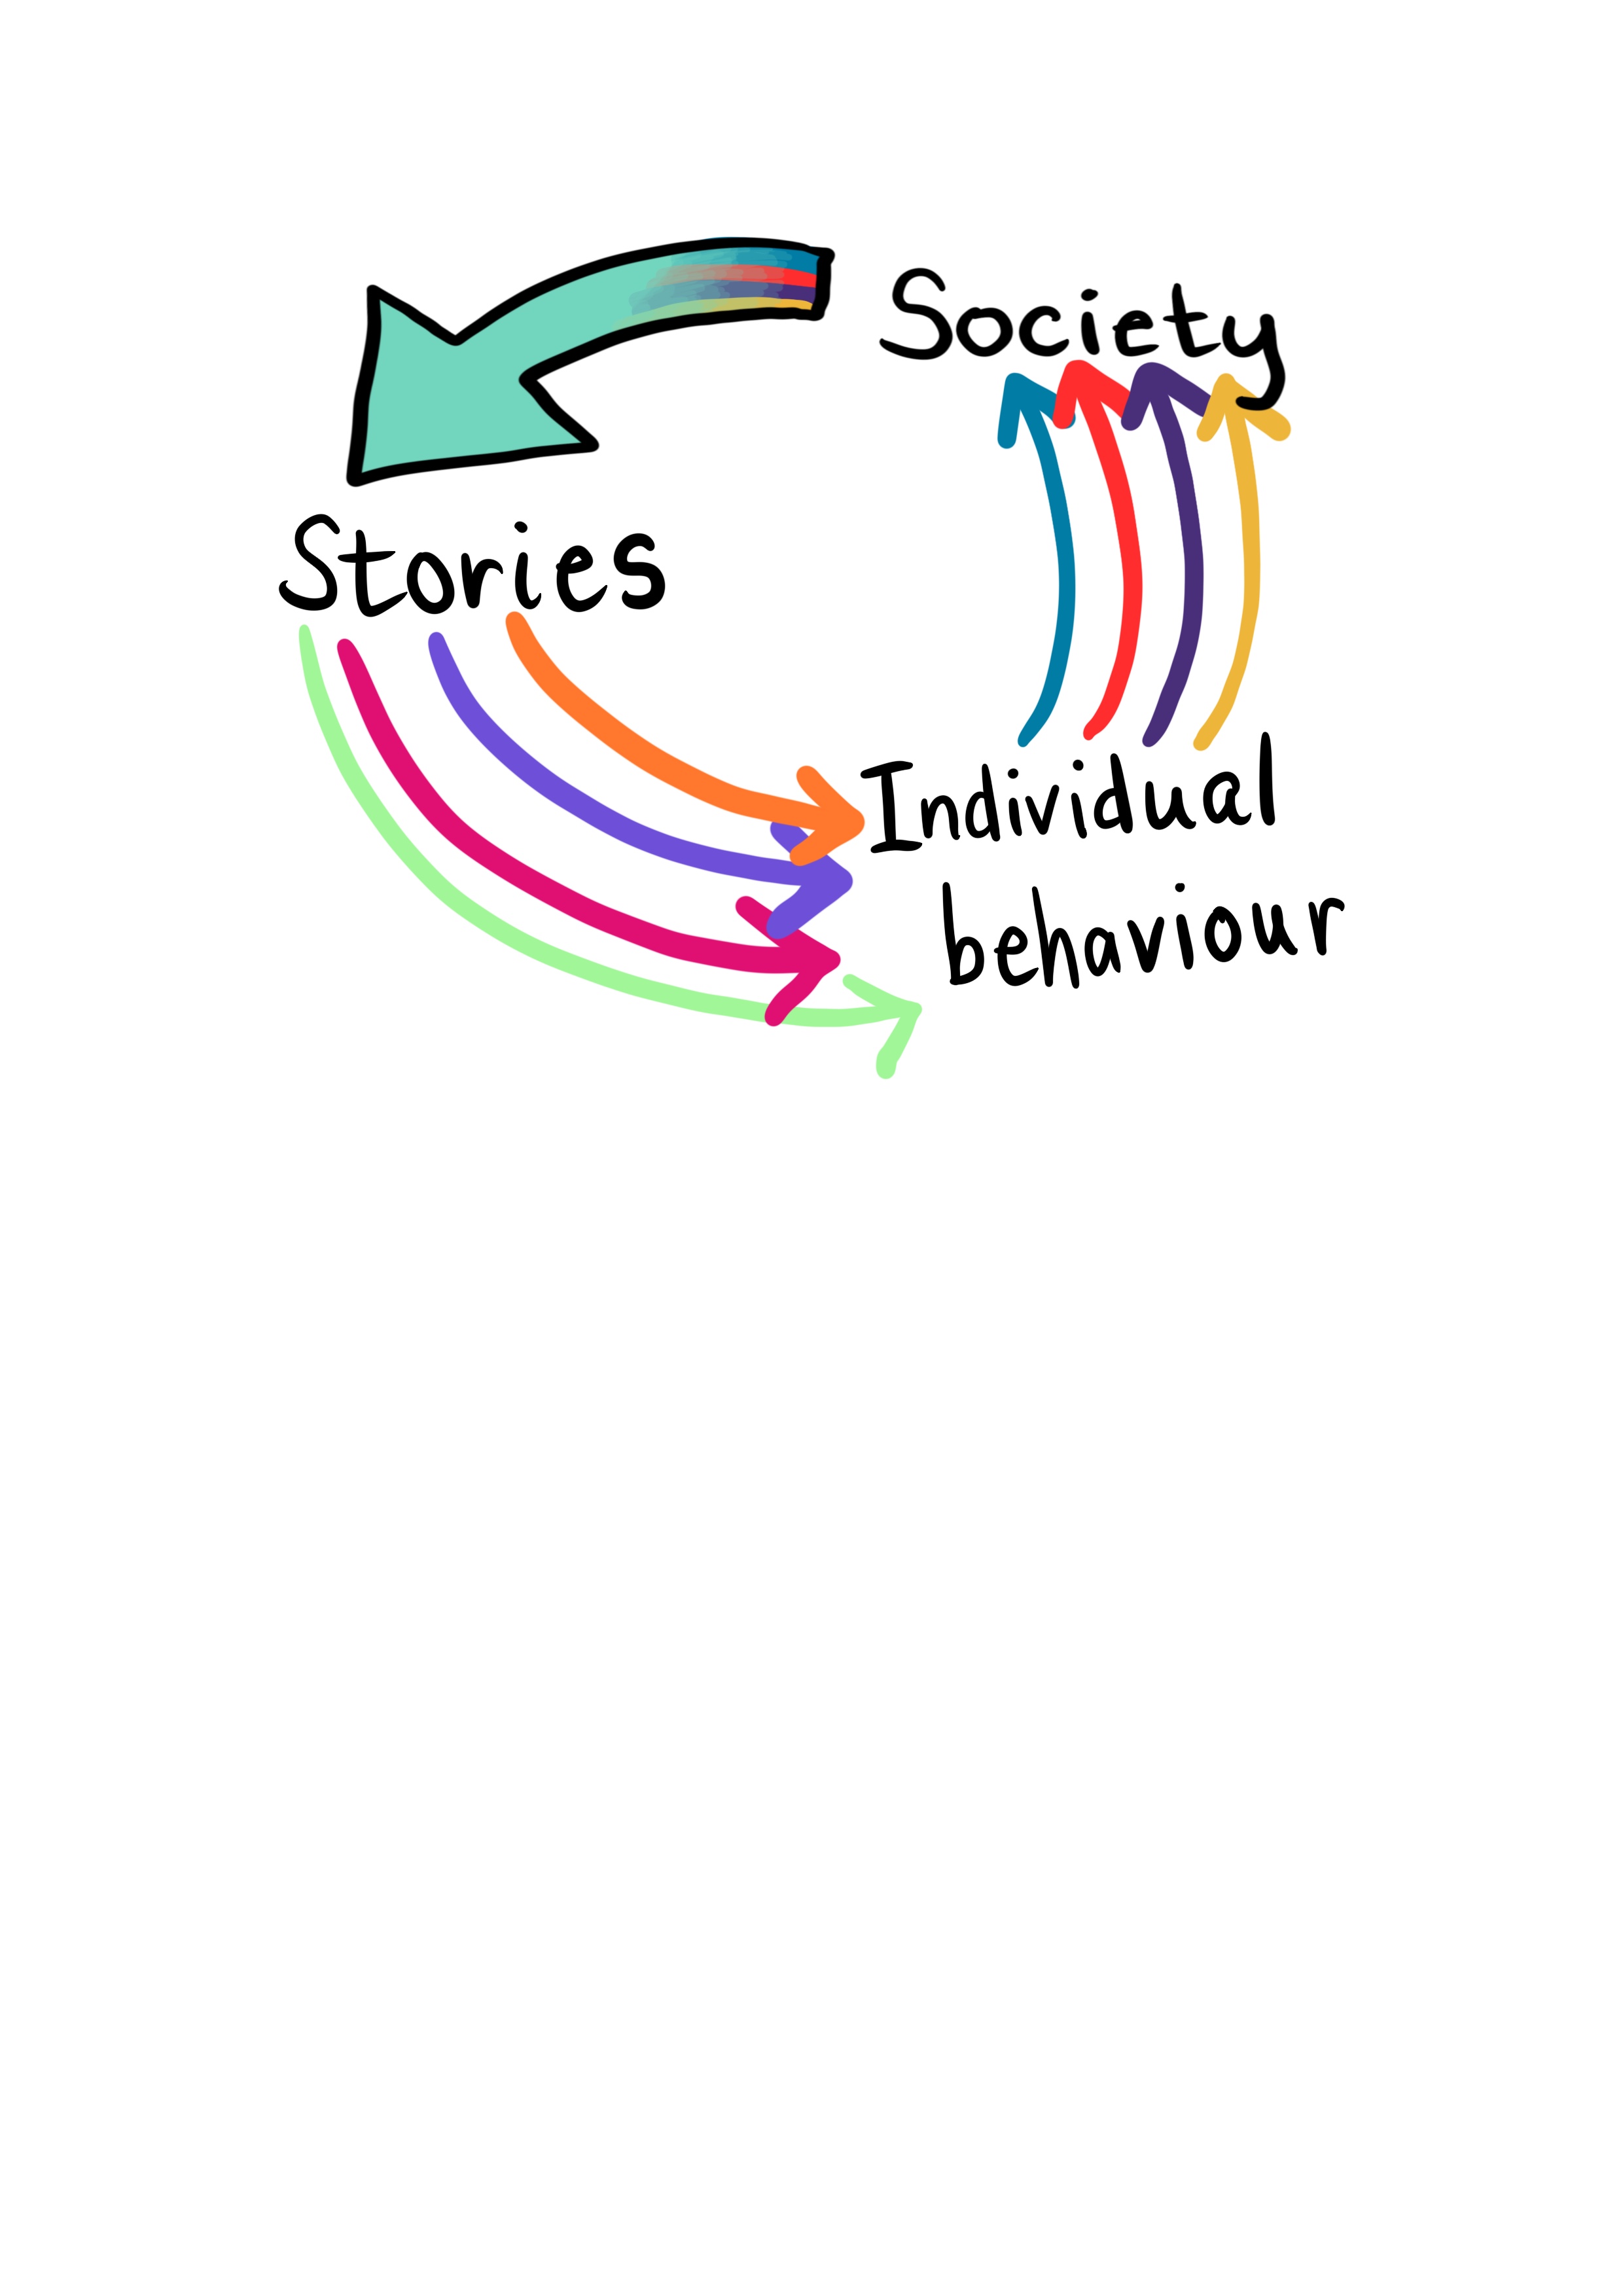 Society
Stories
Individual
behaviour